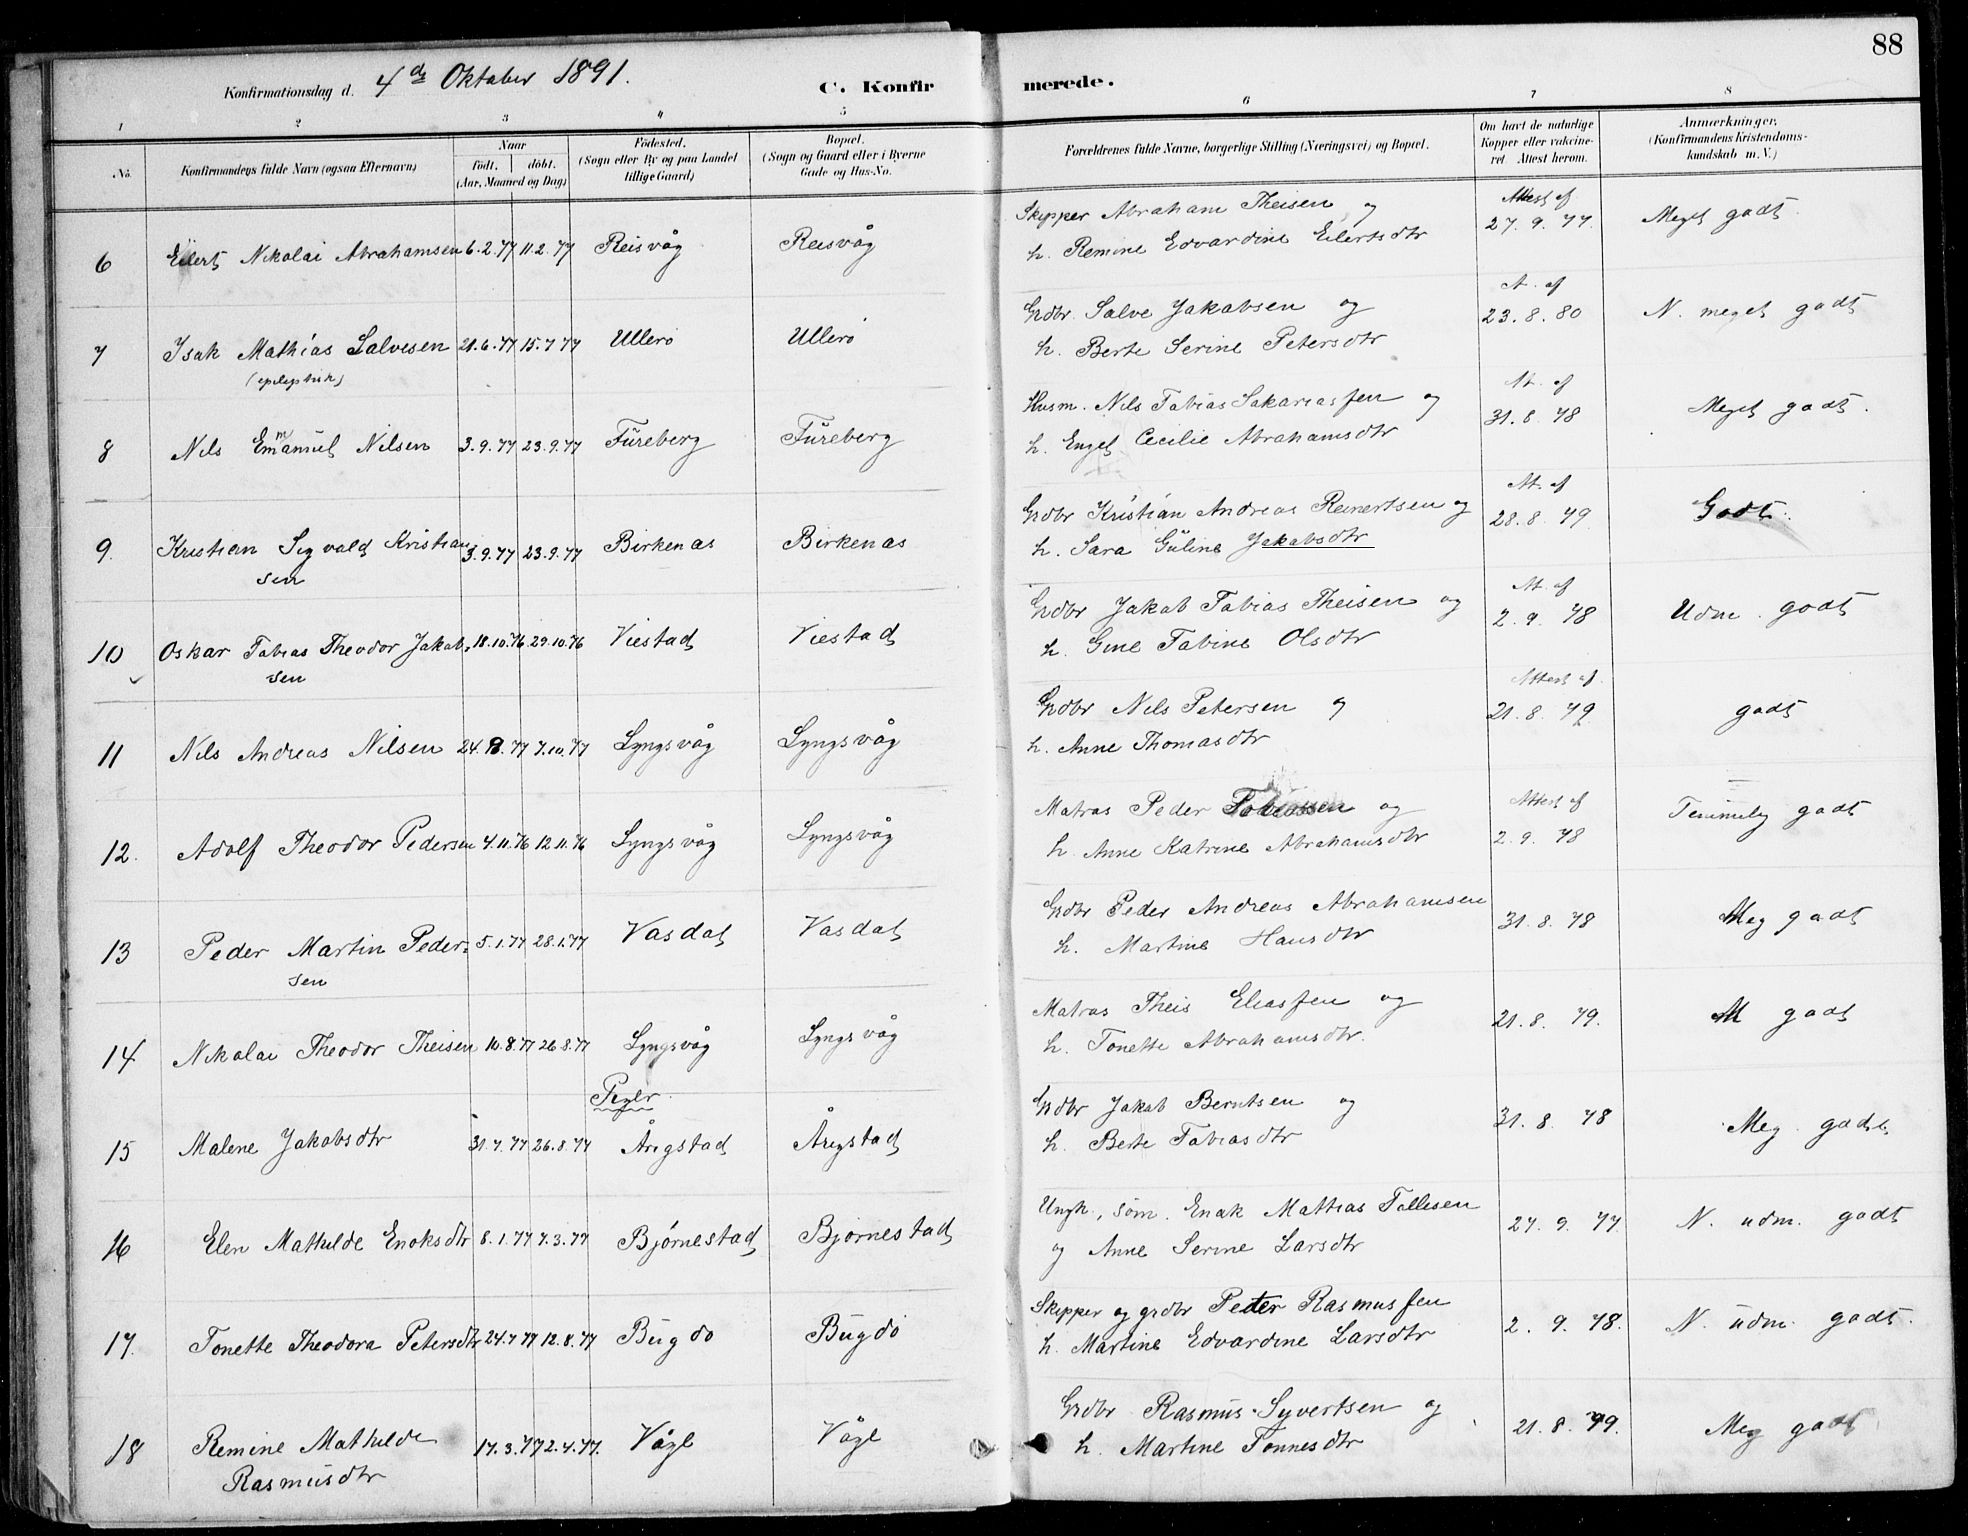 88
Konfirmationsdag d. 4de Oktober 1891.
C. Konfirmerede.
1 2 3 4 5 6 7 8
No.
Konfirmandens fulde Navn (ogsaa Efternavn)
Naar
født. døbt.
(Aar, Maaned og Dag)
Fødested.
(Sogn eller By og paa Landet
tillige Gaard)
Bopæl.
(Sogn og Gaard eller i Byerne
Gade og Hus-No.
Forældrenes fulde Navne, borgerlige Stilling (Næringsvei) og Bopæl.
Om havt de naturlige
Kopper eller vakcine-
ret. Attest herom.
Anmærkninger.
(Konfirmandens Kristendoms-
kundskab m. V.)
6 Eilert Nikolai Abrahamsen 6.2.77 11.2.77 Reisvåg Reisvåg
Skipper Abraham Theisen og
h. Remine Edvardine Eilertsdtr
Attest af
27.9.77. Meget godt.
7 Isak Mathias Salvesen 21.6.77 15.7.77 Ullerö Ullerö
(epileptisk)
Grdbr. Salve Jakobsen og
h. Berte Serine Petersdtr
At. af
23.8.80 N. meget godt
8 Nils Emmanuel Nilsen 3.9.77 23.9.77 Fureberg Fureberg
Husm. Nils Tobias Sakariassen og
h. Engel Cecilie Abrahamsdtr
At. af
31.8.78 Meget godt.
9. Kristian Sigvald Kristian
sen 3.9.77 23.9.77 Birkenas Birkenas
Grdbr Kristian Andreas Reinertsen og
h. Sara Guline Jakobsdtr
At. af
28.8.79. Godt.
10 Oskar Tobias Theodor Jakob-
sen 18.10.76 29.10.76 Viestad Viestad
Grdbr Jakob Tobias Theisen og
h. Gine Tobine Olsdtr
At. af
2.9.78 Udm. godt
11 Nils Andreas Nilsen 24.8.77 7.10.77 Lyngsvåg Lyngsvåg
Grdbr Nils Petersen og
h. Anne Thomasdtr
Attest af.
21.8.79 godt
12. Adolf Theodor Pedersen 4.11.76 12.11.76 Lyngsvåg Lyngsvåg
Matros Peder Tobiassen og
h. Anne Katrine Abrahamsdtr
Attest af
2.9.78 Temmelig godt
13 Peder Martin Peder-
sen 5.1.77 28.1.77 Vasdal Vasdal
Grdbr Peder Andreas Abrahamsen
h. Martine Hansdtr
31.8.78 Meg godt
14 Nikolai Theodor Theisen 10.8.77 26.8.77 Lyngsvåg Lyngsvåg
Matros Theis Eliassen og
h. Tonette Abrahamsdtr.
21.8.79. M godt
Piger
15 Malene Jakobsdtr 31.7.77 26.8.77 Årigstad Årigstad
Grdbr Jakob Berntsen og
h. Berte Tobiasdtr
31.8.78 Meg. godt.
16 Elen Mathilde Enoksdtr 8.1.77 7.3.77 Bjørnestad Bjornestad
Ungk., søm. Enok Mattias Tollisen
og Anne Serine Larsdtr
27.9.77 N. udm. godt
17. Tonette Theodora Petersdtr 24.7.77 12.8.77 Bugdö Bugdö
Skipper og grdbr Peter Rasmussen
h. Martine Edvardine Larsdtr
2.9.78. N. udm. godt.
18 Remine Mathilde
Rasmusdtr 17.3.77 2.4.77. Vågl Vågl
Grdbr Rasmus Syvertsen og
h. Martine Tonnesdtr
21.8.79. Meg godt